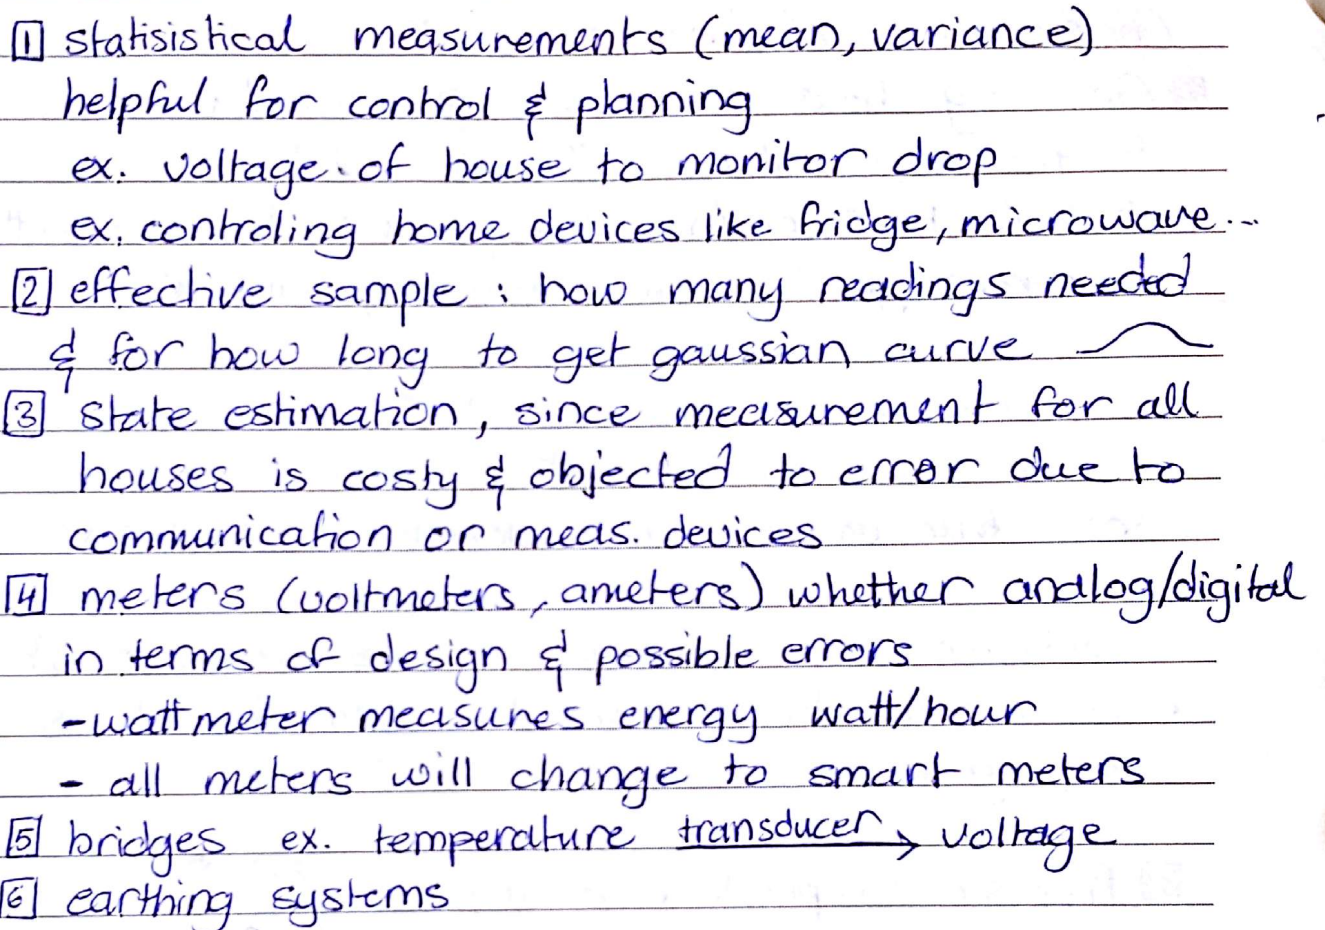 1 statisistical measurements (mean, variance)
helpful for control & planning
ex. voltage of house to monitor drop
ex. controling home devices like fridge, microwave...
2 effective sample : how many readings needed
& for how long to get gaussian curve
3 state estimation, since measurement for all
houses is costy & objected to error due to
communication or meas. devices
4 meters (voltmeters, ameters) whether analog/digital
in terms of design & possible errors
- wattmeter measures energy watt/hour
- all meters will change to smart meters
5 bridges ex. temperature transducer → voltage
6 earthing systems